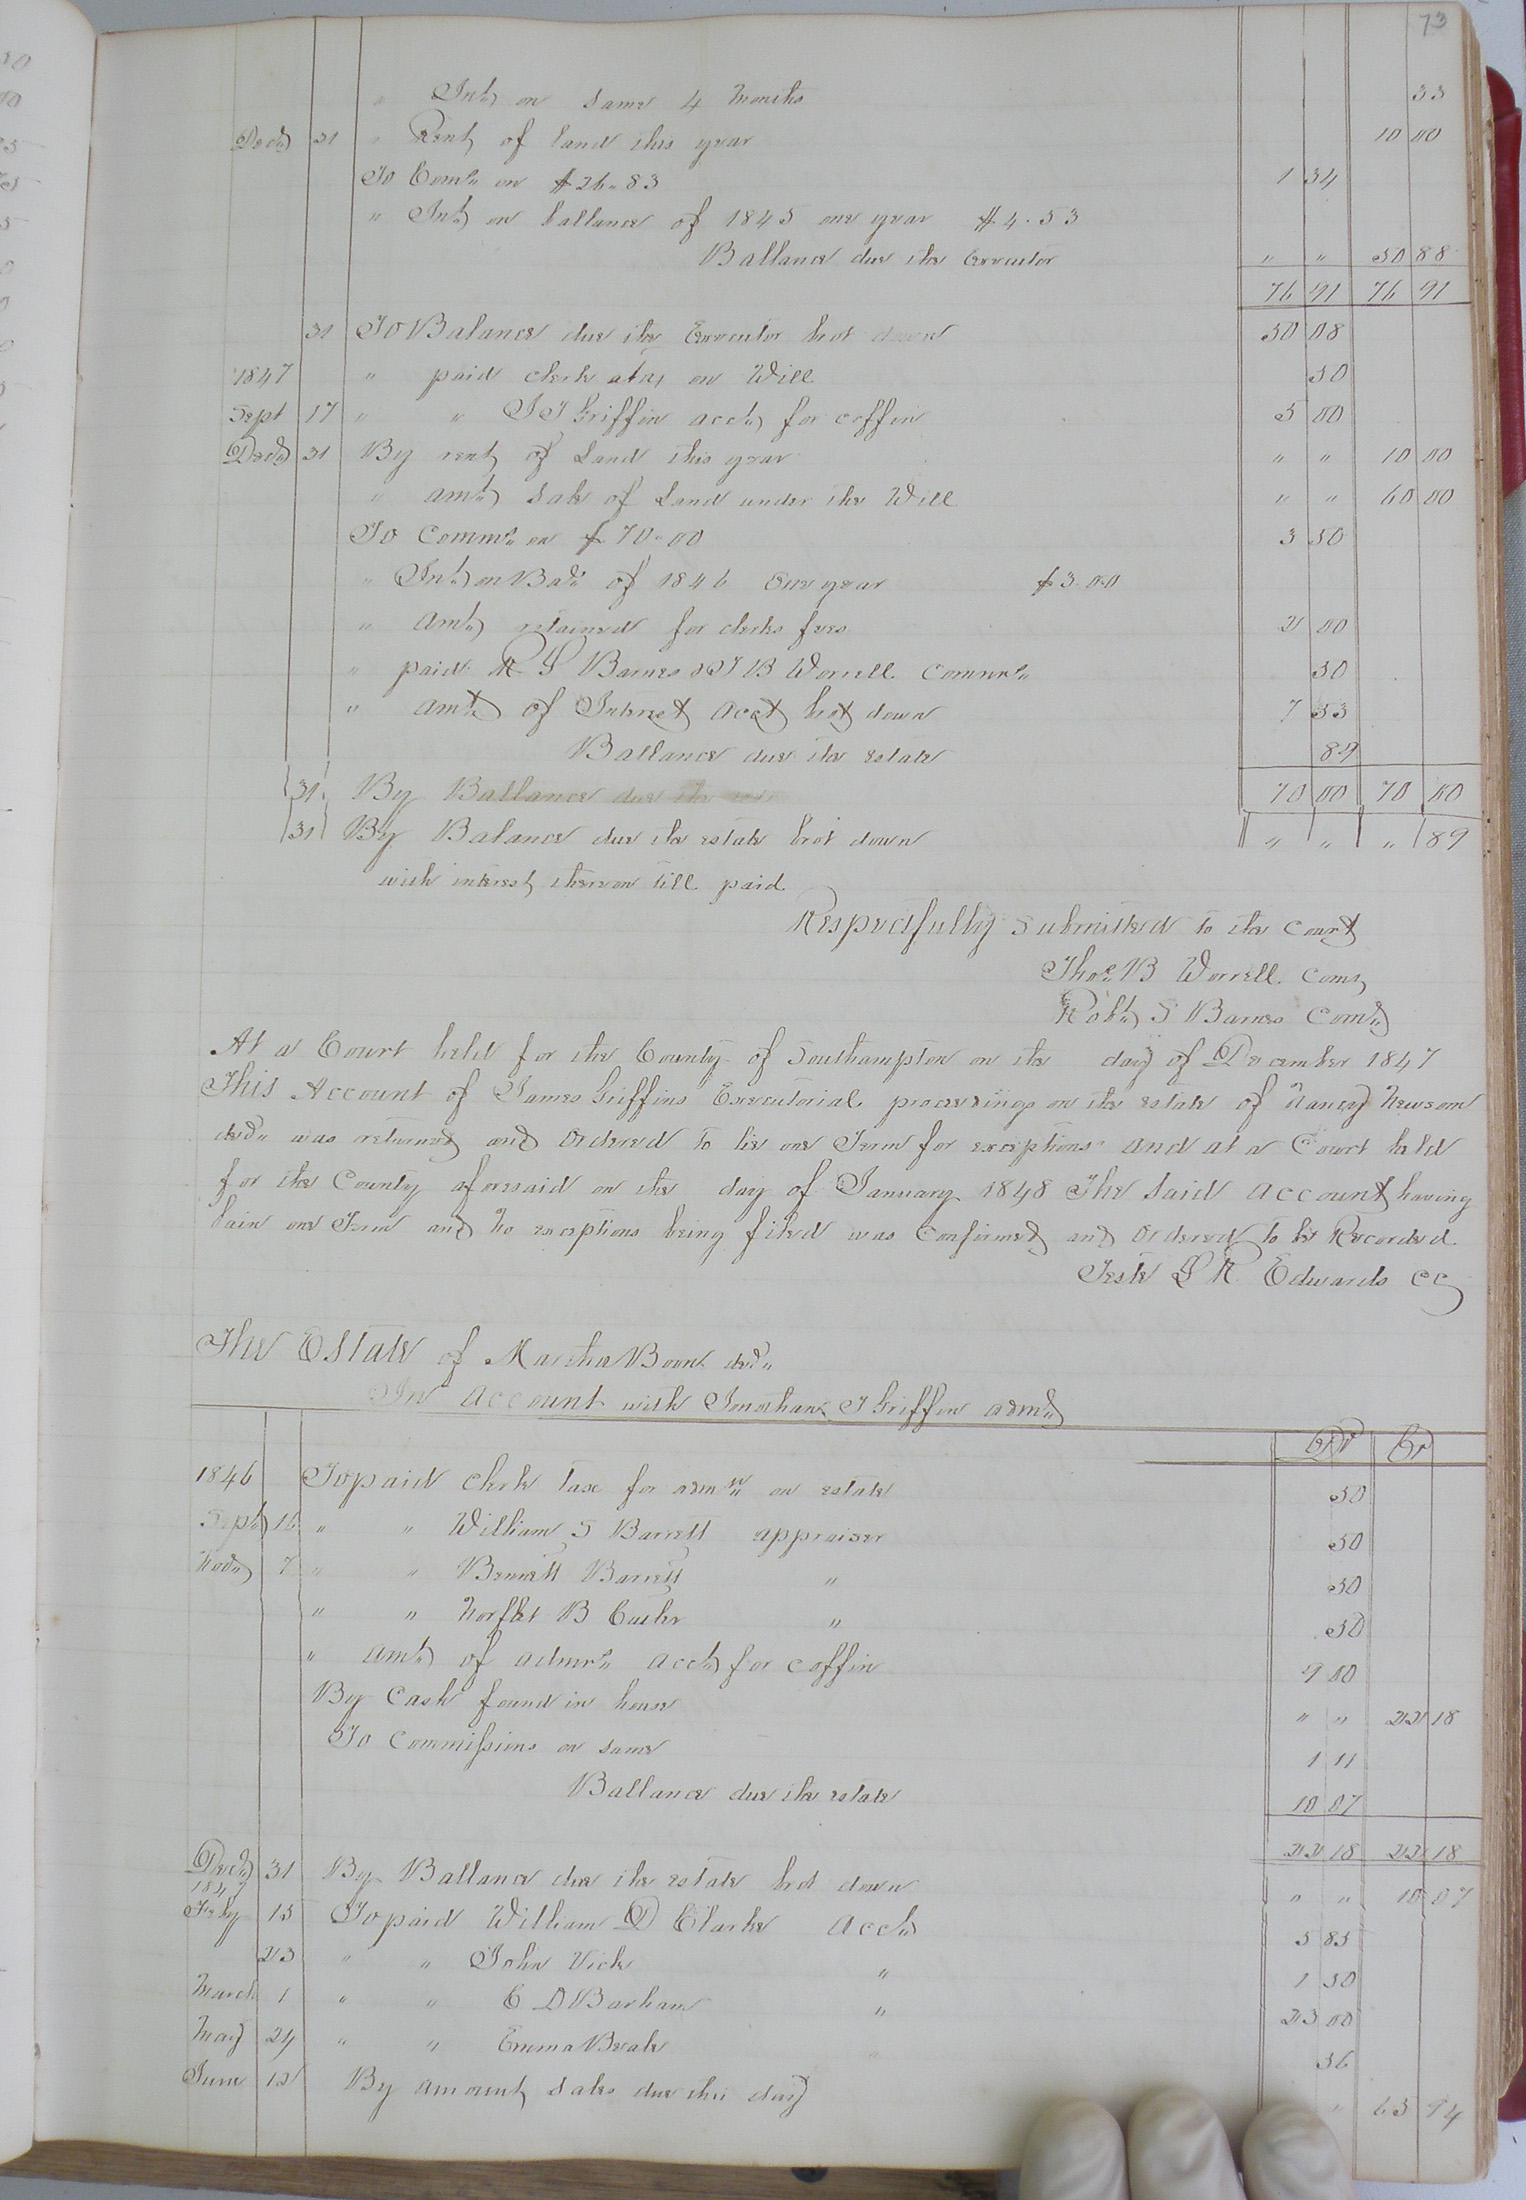 73
" Int on same 4 months 33
Decr 31 " Rent of land this year 10 00
To Comn on $26.83 1 34
" Int on ballance of 1845 one year $4.53
Ballance due the Executor " " 50 88
76 91 76 91
31 To Balance due the Executor brot down 50 08
1847 " paid clerk atax on Will 50
Sept 17 " " J J Griffin acct for coffin 5 00
Decr 31 By rent of Land this year " " 10 00
" amt sale of Land under the Will " " 60 00
To Commn on $70.00 3 50
" Int on Bale of 1846 One year $3.00
" amt retained for clerks fees 2 00
" paid R S Barnes & T B Worrell Commrs 50
" amt of Interest acct brot down 7 53
Ballance due the estate 89
31 By Ballance due the 70 00 70 00
31 By Balance due the estate brot down " " " 89
with interest thereon till paid
Respectfully Submitted to the Court
Thos B Worrell Coms
Robt S Barnes Coms
At a Court held for the County of Southampton on the day of December 1847
This Account of James Griffins Executorial proceedings on the estate of Nancy Newsom
decd was returned and Ordered to lie one Term for exceptions and at a Court held
for the County aforesaid on the day of January 1848 The Said Account having
lain one Term and no exceptions being filed was Confirmed and Ordered to be Recorded
Teste L R Edwards CC
The Estate of Martha Boon decd
In Account with Jonathan J Griffin admr
Dr Cr
1846 To paid Clerk tax for admn on estate 50
Sept 16 " " William S Barrett appraiser 50
Novr 7 " " Bennett Barrett " 50
" " Norflet B " 50
" Amt of admrs acct for coffin 9 00
By Cash found in house " " 22 18
To Commissions on same 1 11
Ballance due the estate 10 07
22 18 22 18
Decr 31 By Ballance due the estate brot down " " 10 07
1847
Feby 15 To paid William D Clarke Acct 5 85
23 " " John Vick " 1 50
March 1 " " E D Barham " 23 00
May 24 " " Emma Beale " 36
June 12 By amount sales due this day " 65 94